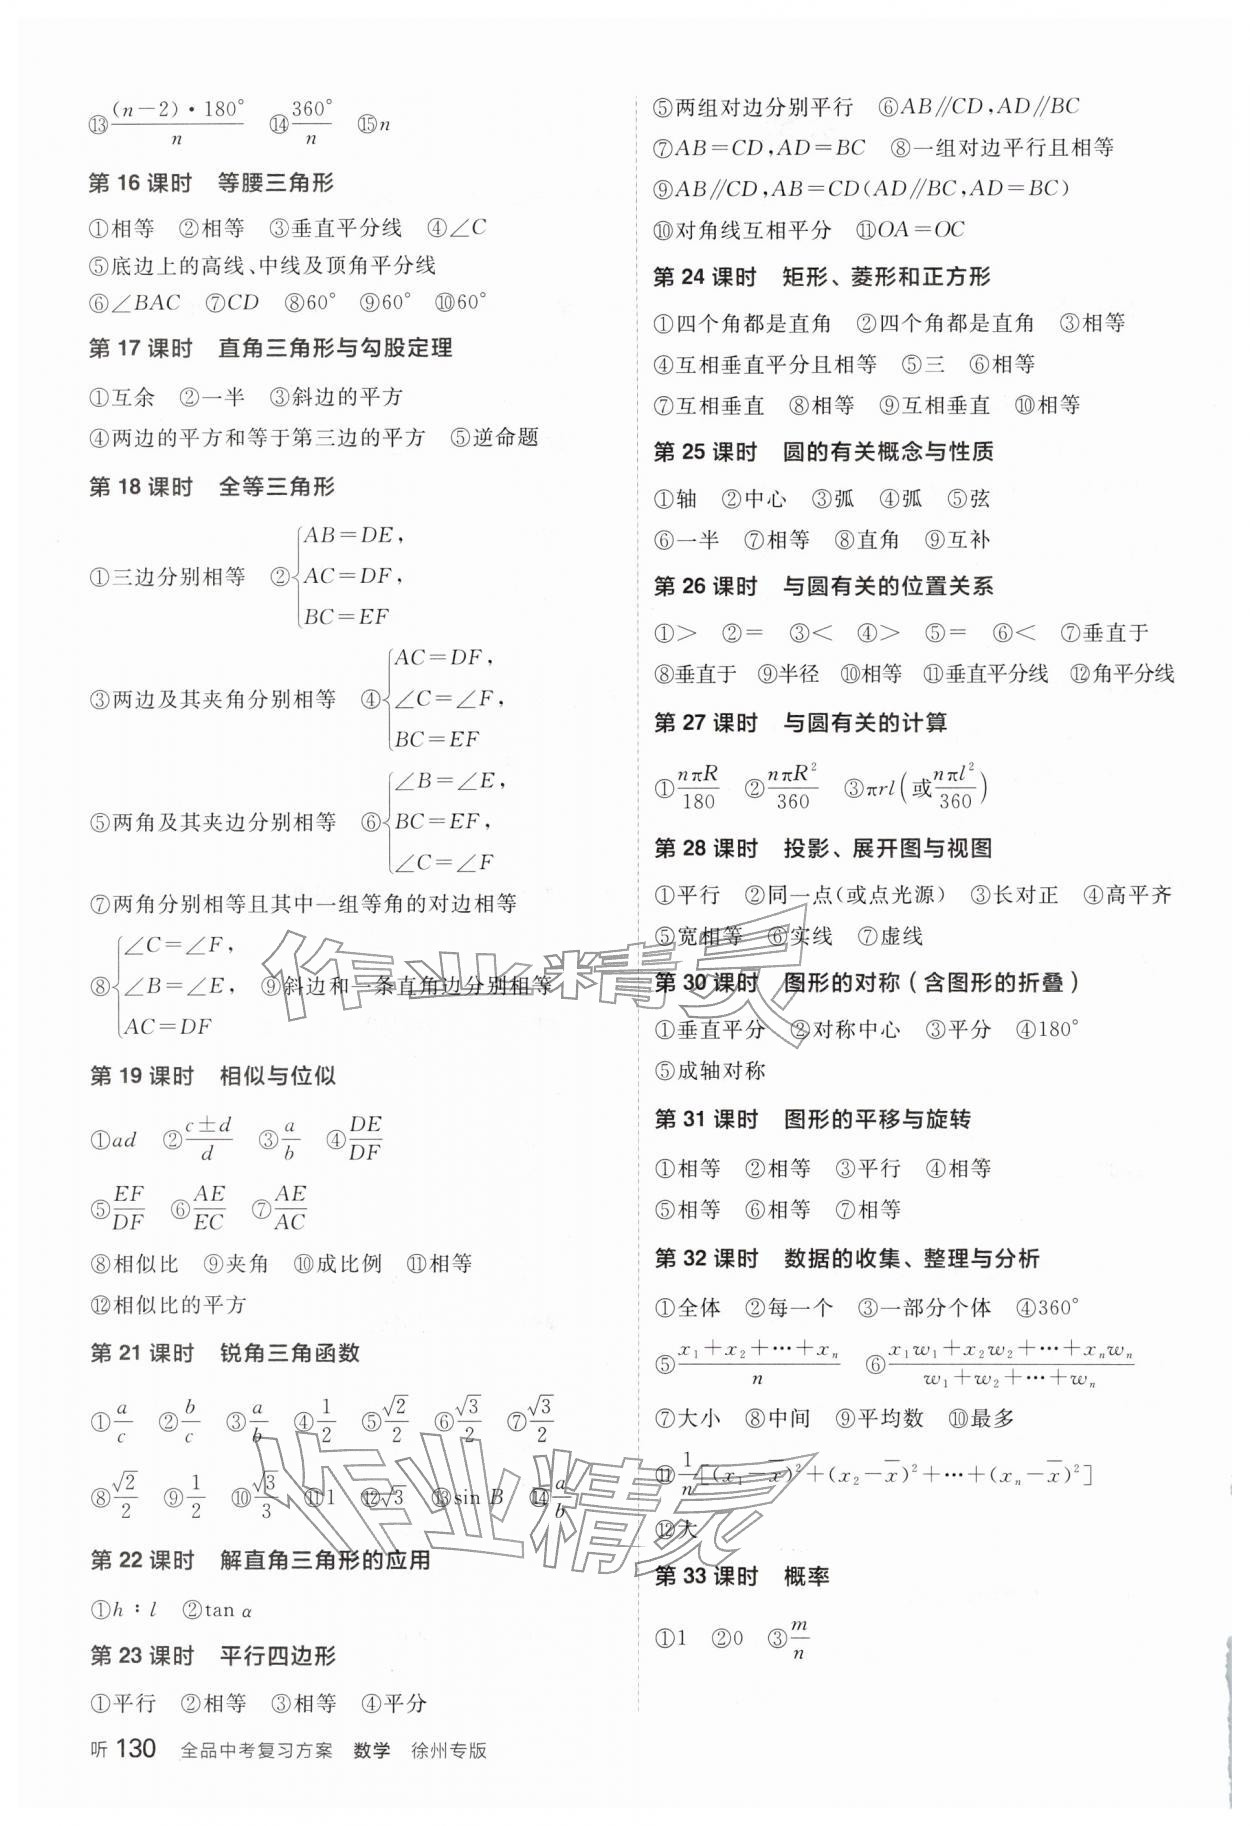 ⑬(n-2)·180°/n ⑭360°/n ⑮n
第 16 课时 等腰三角形
①相等 ②相等 ③垂直平分线 ④∠C
⑤底边上的高线、中线及顶角平分线
⑥∠BAC ⑦CD ⑧60° ⑨60° ⑩60°
第 17 课时 直角三角形与勾股定理
①互余 ②一半 ③斜边的平方
④两边的平方和等于第三边的平方 ⑤逆命题
第 18 课时 全等三角形
①三边分别相等 ②{AB=DE,
AC=DF,
BC=EF
③两边及其夹角分别相等 ④{AC=DF,
∠C=∠F,
BC=EF
⑤两角及其夹边分别相等 ⑥{∠B=∠E,
BC=EF,
∠C=∠F
⑦两角分别相等且其中一组等角的对边相等
⑧{∠C=∠F,
∠B=∠E, ⑨斜边和一条直角边分别相等
AC=DF
第 19 课时 相似与位似
①ad ②(c±d)/d ③a/b ④DE/DF
⑤EF/DF ⑥AE/EC ⑦AE/AC
⑧相似比 ⑨夹角 ⑩成比例 ⑪相等
⑫相似比的平方
第 21 课时 锐角三角函数
①a/c ②b/c ③a/b ④1/2 ⑤√2/2 ⑥√3/2 ⑦√3/2
⑧√2/2 ⑨1/2 ⑩√3/3 ⑪1 ⑫√3 ⑬sin B ⑭a/b
第 22 课时 解直角三角形的应用
①h∶l ②tan α
第 23 课时 平行四边形
①平行 ②相等 ③相等 ④平分
⑤两组对边分别平行 ⑥AB∥CD,AD∥BC
⑦AB=CD,AD=BC ⑧一组对边平行且相等
⑨AB∥CD,AB=CD(AD∥BC,AD=BC)
⑩对角线互相平分 ⑪OA=OC
第 24 课时 矩形、菱形和正方形
①四个角都是直角 ②四个角都是直角 ③相等
④互相垂直平分且相等 ⑤三 ⑥相等
⑦互相垂直 ⑧相等 ⑨互相垂直 ⑩相等
第 25 课时 圆的有关概念与性质
①轴 ②中心 ③弧 ④弧 ⑤弦
⑥一半 ⑦相等 ⑧直角 ⑨互补
第 26 课时 与圆有关的位置关系
①> ②= ③< ④> ⑤= ⑥< ⑦垂直于
⑧垂直于 ⑨半径 ⑩相等 ⑪垂直平分线 ⑫角平分线
第 27 课时 与圆有关的计算
①nπR/180 ②nπR²/360 ③πrl(或nπl²/360)
第 28 课时 投影、展开图与视图
①平行 ②同一点(或点光源) ③长对正 ④高平齐
⑤宽相等 ⑥实线 ⑦虚线
第 30 课时 图形的对称(含图形的折叠)
①垂直平分 ②对称中心 ③平分 ④180°
⑤成轴对称
第 31 课时 图形的平移与旋转
①相等 ②相等 ③平行 ④相等
⑤相等 ⑥相等 ⑦相等
第 32 课时 数据的收集、整理与分析
①全体 ②每一个 ③一部分个体 ④360°
⑤(x₁+x₂+⋯+xₙ)/n ⑥(x₁w₁+x₂w₂+⋯+xₙwₙ)/(w₁+w₂+⋯+wₙ)
⑦大小 ⑧中间 ⑨平均数 ⑩最多
⑪1/n[(x₁-x̄)²+(x₂-x̄)²+⋯+(xₙ-x̄)²]
⑫大
第 33 课时 概率
①1 ②0 ③m/n
听 130 全品中考复习方案 数学 徐州专版
作业精灵
作业精灵